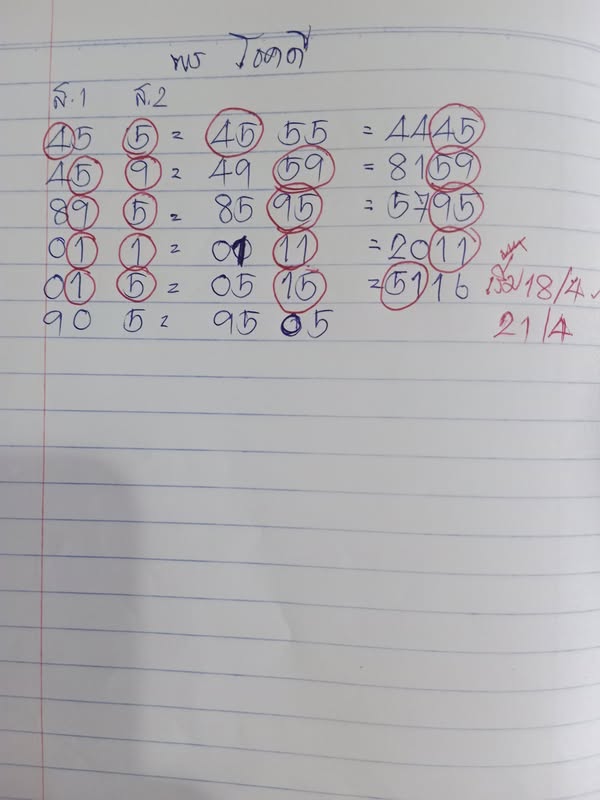 พร โชคดี
ส.1 ส.2
45 5 = 45 55 = 4445
45 9 = 49 59 = 8159
89 5 = 85 95 = 5795
01 1 = 01 11 = 2011
01 5 = 05 15 = 5116 18/4
90 5 = 95 05 21/4